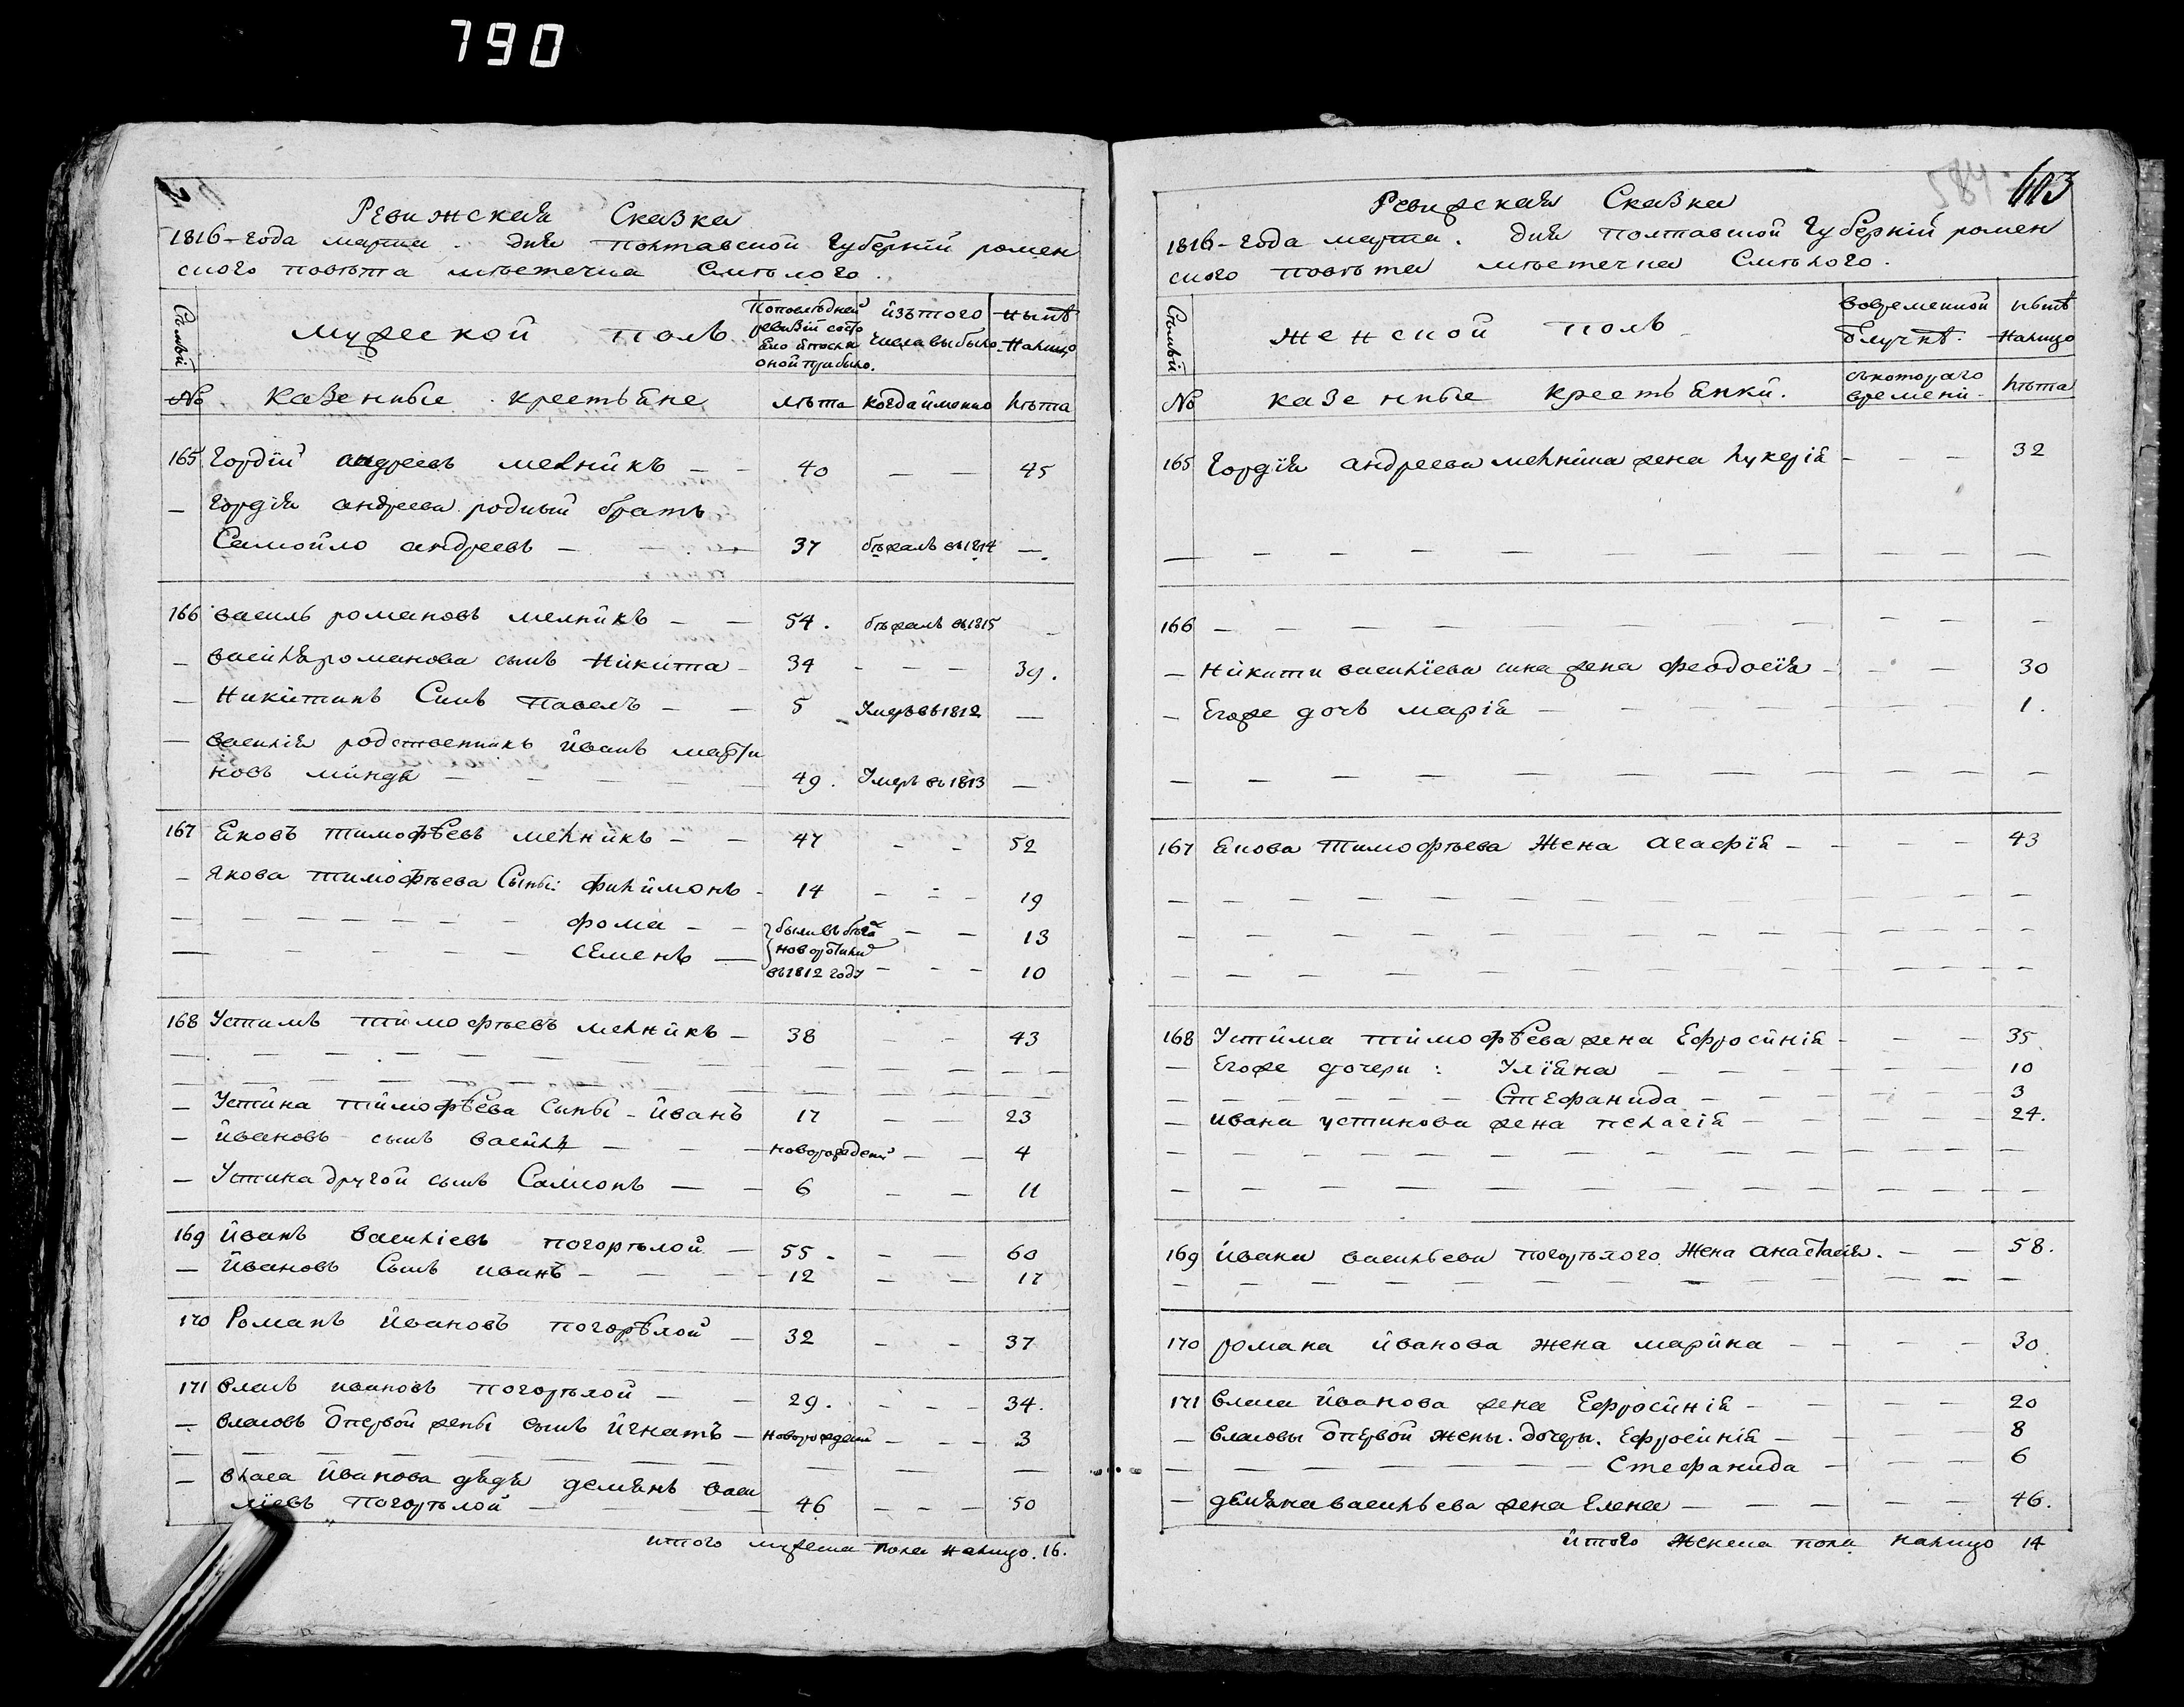 790
Ревижская Сказка
1816-года марта . дня полтавской губерніи ромен
ского повѣта мѣстечка Смѣлого .
Съмьи
Мужеской полъ
По последней
ревизіи состо
яло и после
оной прибыло.
изъ того
числа выбыло.
ныне
Налицо
№ Казенные крестьяне лѣта когда именно лѣта
165 Гордій андреевъ мелникъ — — 40 — — 45
— Гордія андреева родный братъ
Самойло андреевъ — — — 37 бѣжалъ въ 1814 —
166 василь романовъ мелникъ — — 54. бѣжалъ въ 1815 —
— василя романова сынъ Никита — 34 — — — 39.
— Никитинъ Сынъ павелъ — — 5 Умеръ въ 1812 —
— василія родственникъ иванъ марти
новъ минд — — — — 49. Умеръ въ 1813 —
167 Яковъ тимофѣевъ мелникъ — — 47 — — 52
— Якова тимофѣева Сыны: филимонъ — 14 — — — 19
— — — — — — — фома — — были въ 13
— — — — — — семенъ — 10
въ 1812 году
168 Устимъ тимофѣевъ мелникъ — 38 — — 43
— — — — — — — — — — — — —
— — — — — — — — — — — — —
— Устина тимофѣева сыны — иванъ 17 — — 23
— ивановъ сынъ василь — — — новорожденый — — 4
— Устина другой сынъ Самсонъ — — 6 — — 11
169 иванъ василіевъ погорѣлой — 55 — — — 60
— ивановъ Сынъ иванъ — — — — 12 — — 17
170 Романъ ивановъ погорѣлой — 32 — — 37
171 власъ ивановъ погорѣлой — — 29. — — — 34.
— власовъ отпервой жены сынъ игнатъ — новорожденый — — — 3
— — — — — — — — — — —
— власа иванова дядя демянъ васи
ліевъ погорѣлой — — — 46 — — — 50
итого мужеска пола налицо. 16.
584 603
Ревижская Сказка
1816-года марта. дня полтавской губерніи ромен
ского повѣта мѣстечка Смѣлого.
Съмьи
Женской полъ
вовременной
отлучкѣ.
ныне
Налицо
№ казенные крестьянки.
съ котораго
времени.
лѣта
165 Гордія андреева мелника жена лукерія — — — 32
— — — — — — — — — — —
166 — — — — — — — — — — —
— Никити василіева сина жена феодосія — — — 30
— Егоже дочъ марія — — — — — — 1.
— — — — — — — — — — — —
167 Якова тимофѣева Жена агафія — — — — 43
— — — — — — — — — — — —
— — — — — — — — — — — —
— — — — — — — — — — — —
168 Устима тимофѣева жена Ефросинія — — — 35
— Егоже дочери : Уліяна — — — — — — 10
— — — — — — Стефанида — — — — — 3
— ивана устинова жена пелагія — — — — 24.
— — — — — — — — — — — —
— — — — — — — — — — — —
169 ивана васильева погорѣлого Жена анастасія. — — 58.
— — — — — — — — — — — —
170 романа иванова жена марина — — — — 30
171 власа иванова жена Ефросинія — — — — 20
— власовы отпервой жены. дочери. Ефросинія — — — 8
— — — — — — — Стефанида — — — 6
— демяна васильева жена Елена — — — — — 46.
итого Женска пола налицо 14